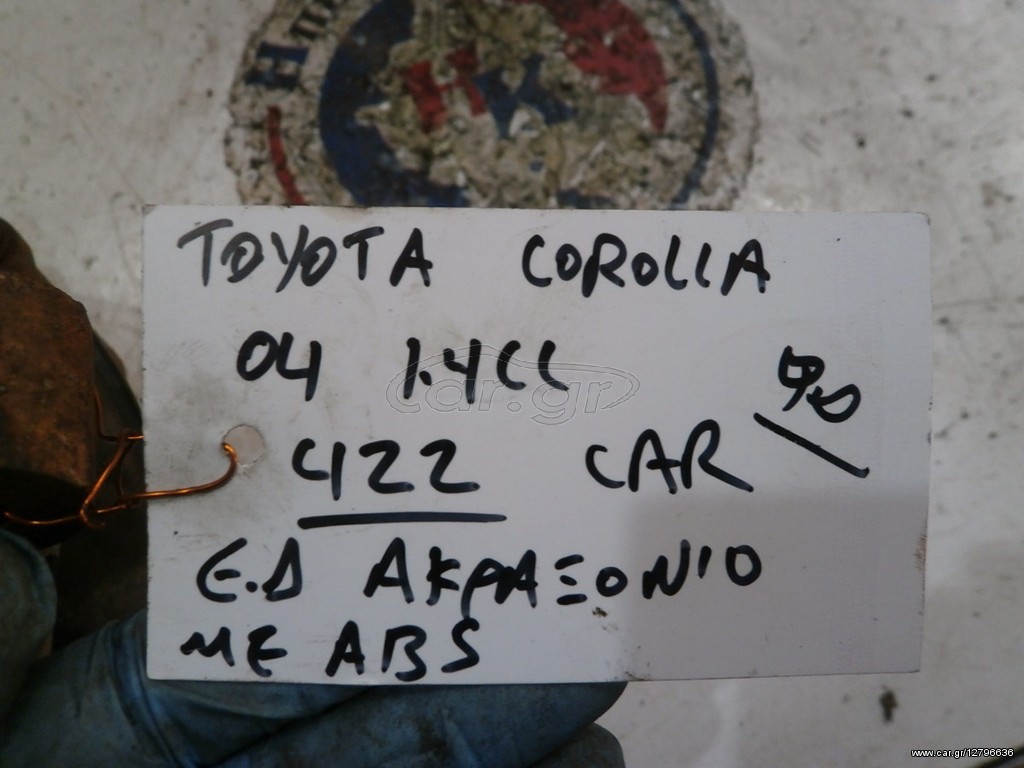 TOYOTA COROLLA
04 1.4CC
422 CAR
Ε.Δ ΑΚΡΑΞΟΝΙΟ
ΜΕ ABS
car.gr
www.car.gr/12796636